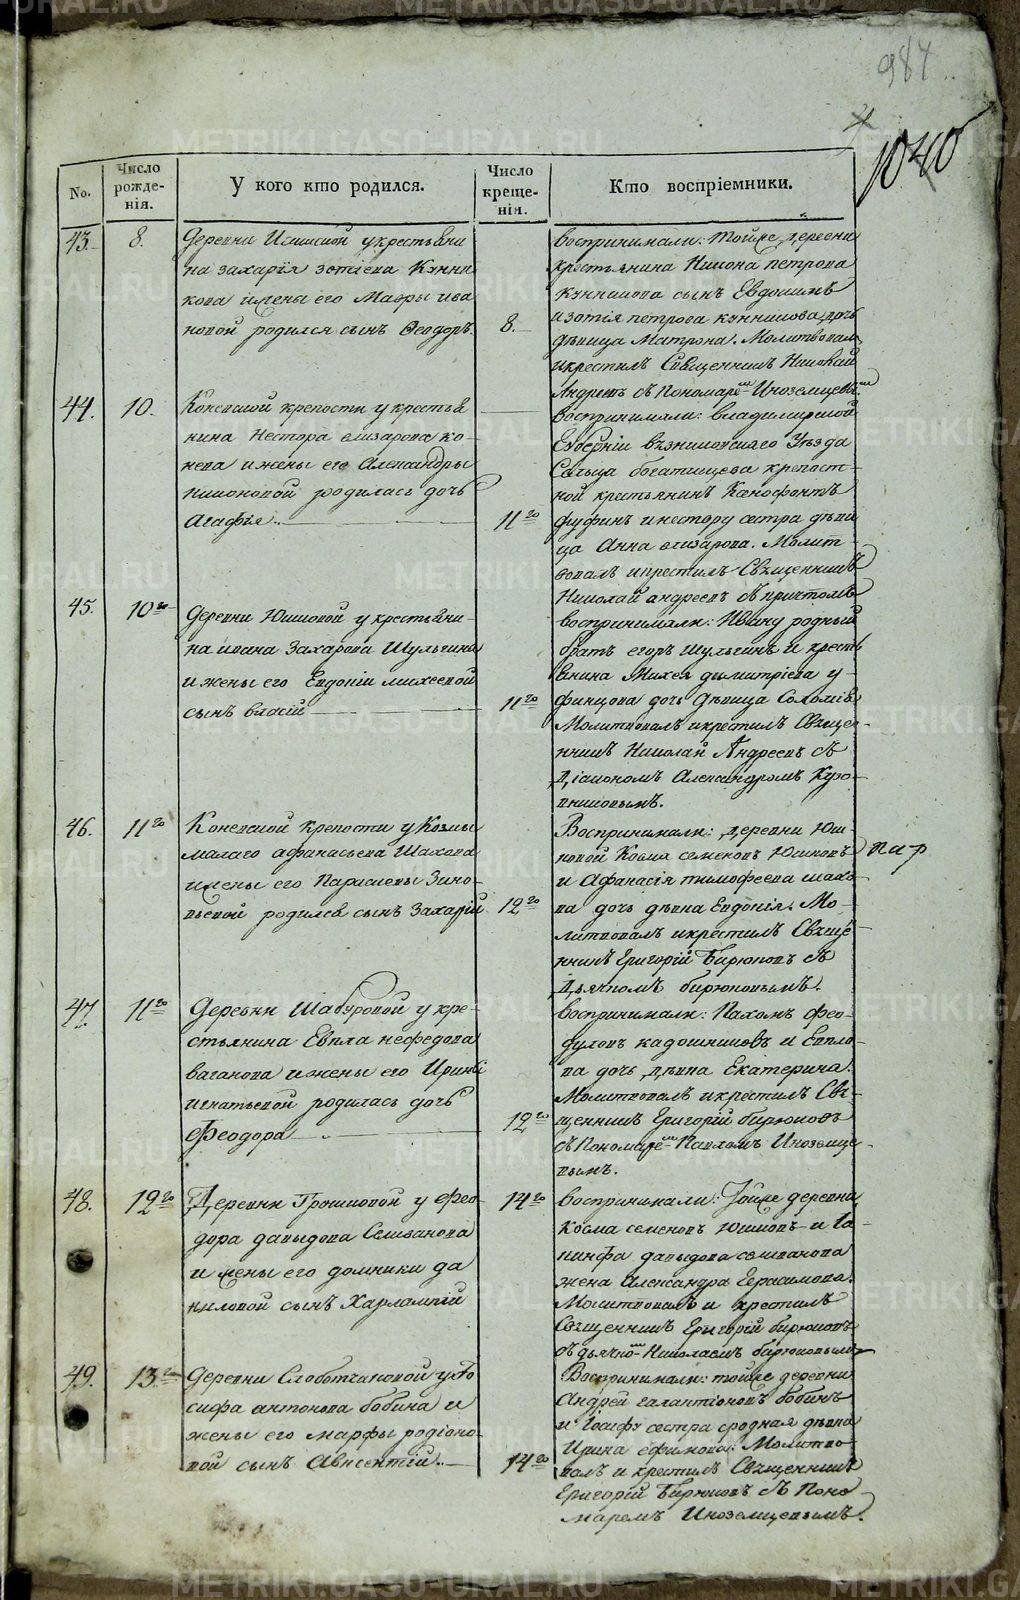 984
1040
No.
Число рожденія.
У кого кто родился.
Число крещенія.
Кто воспріемники.
43.
8.
Деревни у крестьяни
на захарія зотіева Кунни
кова и жены его Мавры ива
новой родился сынъ Феодоръ.
8.
воспринимали: Той же деревни
крестьянина Никона петрова
куннikова сынъ Евдокимъ
изотія петрова кунникова дочь
дѣвица Матрона. Молитвовалъ
и крестилъ Священникъ Николай
Андреевъ съ Пономаремъ Иноземцевымъ
44.
10.
Коневской крепости у крестья
нина Нестора елизарова ко-
нева и жены его Александры
никоновой родилась дочь
Агафья.
11го
воспринимали: владимирской
Губерніи вязниковскаго Уезда
Сельца богатищева крепост-
ной крестьянинъ Ксенофонтъ
и нестору сестра дѣви
ца Анна елизарова. Молит-
вовалъ и крестилъ Священникъ
Николай андреевъ съ причтомъ
45.
10го
Деревни Юшковой у крестьяни-
на ивана Захарова Шульгина
и жены его Евдокіи михеевой
сынъ власій
11го
воспринимали: Ивану родный
братъ егоръ шульгинъ и кресть
янина Михея димитріева у-
фимцова дочь дѣвица Соломія
Молитвовалъ и крестилъ Свяще-
нникъ Николай Андреевъ съ
Діакономъ Александромъ Куро-
46.
11го
Коневской крепости у Козмы
малаго афанасьева Шахова
и жены его Парасковьи Зино-
вьевой родился сынъ Захарій
12го
Воспринимали: деревни Юш-
ковой Косма семеновъ Юшковъ
и Афанасія тимофеева шахо-
ва дочь дѣвка Евдокія. Мо-
литвовалъ и крестилъ Свяще-
нникъ Григорій Бирюковъ съ
Дьячкомъ бирюковымъ.
47.
11го
Деревни Шабуровой у кре-
стьянина Евпла нефедова
ваганова и жены его Ирины
игнатьевой родилась дочь
Феодора
12го
воспринимали: Пахомъ Фео-
фуловъ кадошниковъ и Евпло-
ва дочь дѣвка Екатерина.
Молитвовалъ и крестилъ Свя-
щенникъ Григорій бирюковъ
съ Пономаремъ Павломъ Иноземце-
вымъ.
48.
12го
Деревни Грошковой у Фео-
дора давыдова Селиванова
и жены его домники да
ниловой сынъ Харлампій
14го
воспринимали: Тойже деревни
Косма семеновъ Юшковъ и Іа-
кинфа давыдова селиванова
жена Александра Герасимова.
Молитвовалъ и крестилъ
Священникъ Григорій бирюковъ
съ дьячкомъ Николаемъ бирюковымъ
49.
13го
Деревни Слоботчиковой у Іо
сифа антонова бобина и
жены его марфы родіоно-
вой сынъ Авксентій.
14го
Воспринимали: тойже деревни
Андрей галактіоновъ бобинъ
и Іосифу сестра сродная дѣвка
Ирина ефимова. Молитво-
валъ и крестилъ Священникъ
Григорій Бирюковъ съ Поно-
маремъ Иноземцевымъ.
METRIKI.GASO-URAL.RU